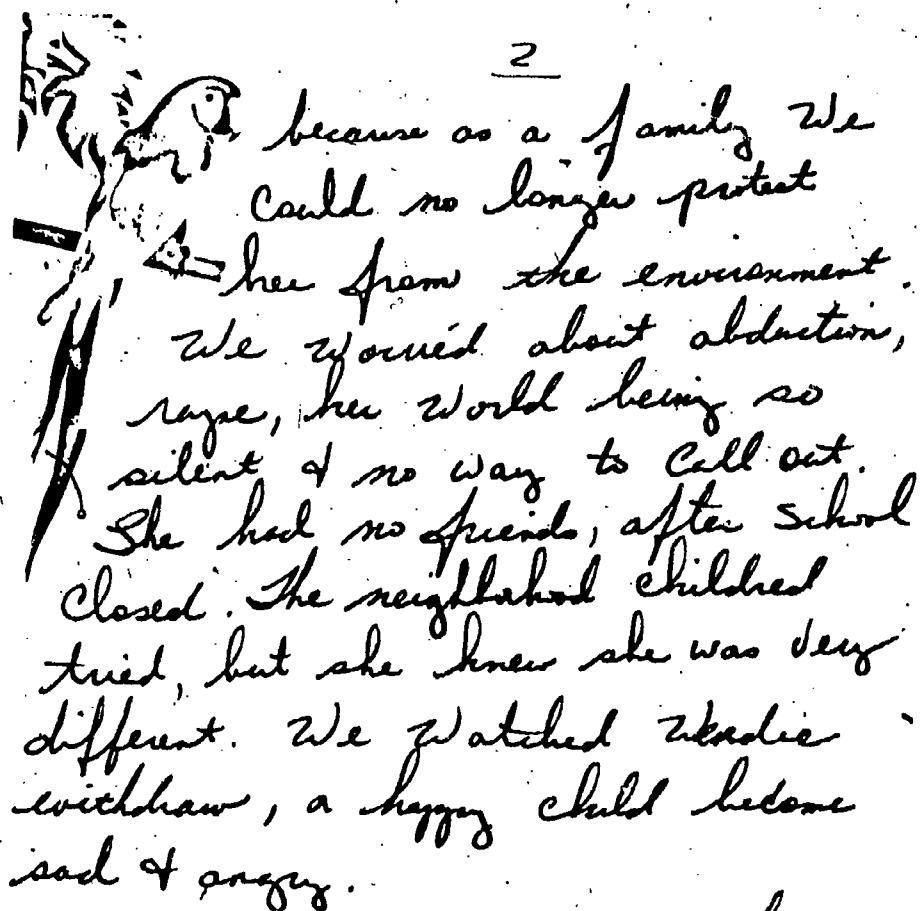 2
because as a family We
Could no longer protect
her from the environment.
We worried about abduction,
rape, her world being so
silent & no way to Call out.
She had no friends, after School
Closed. The neighborhood children
tried, but she knew she was very
different. We Watched Wendie
withdraw, a happy child become
sad & angry.